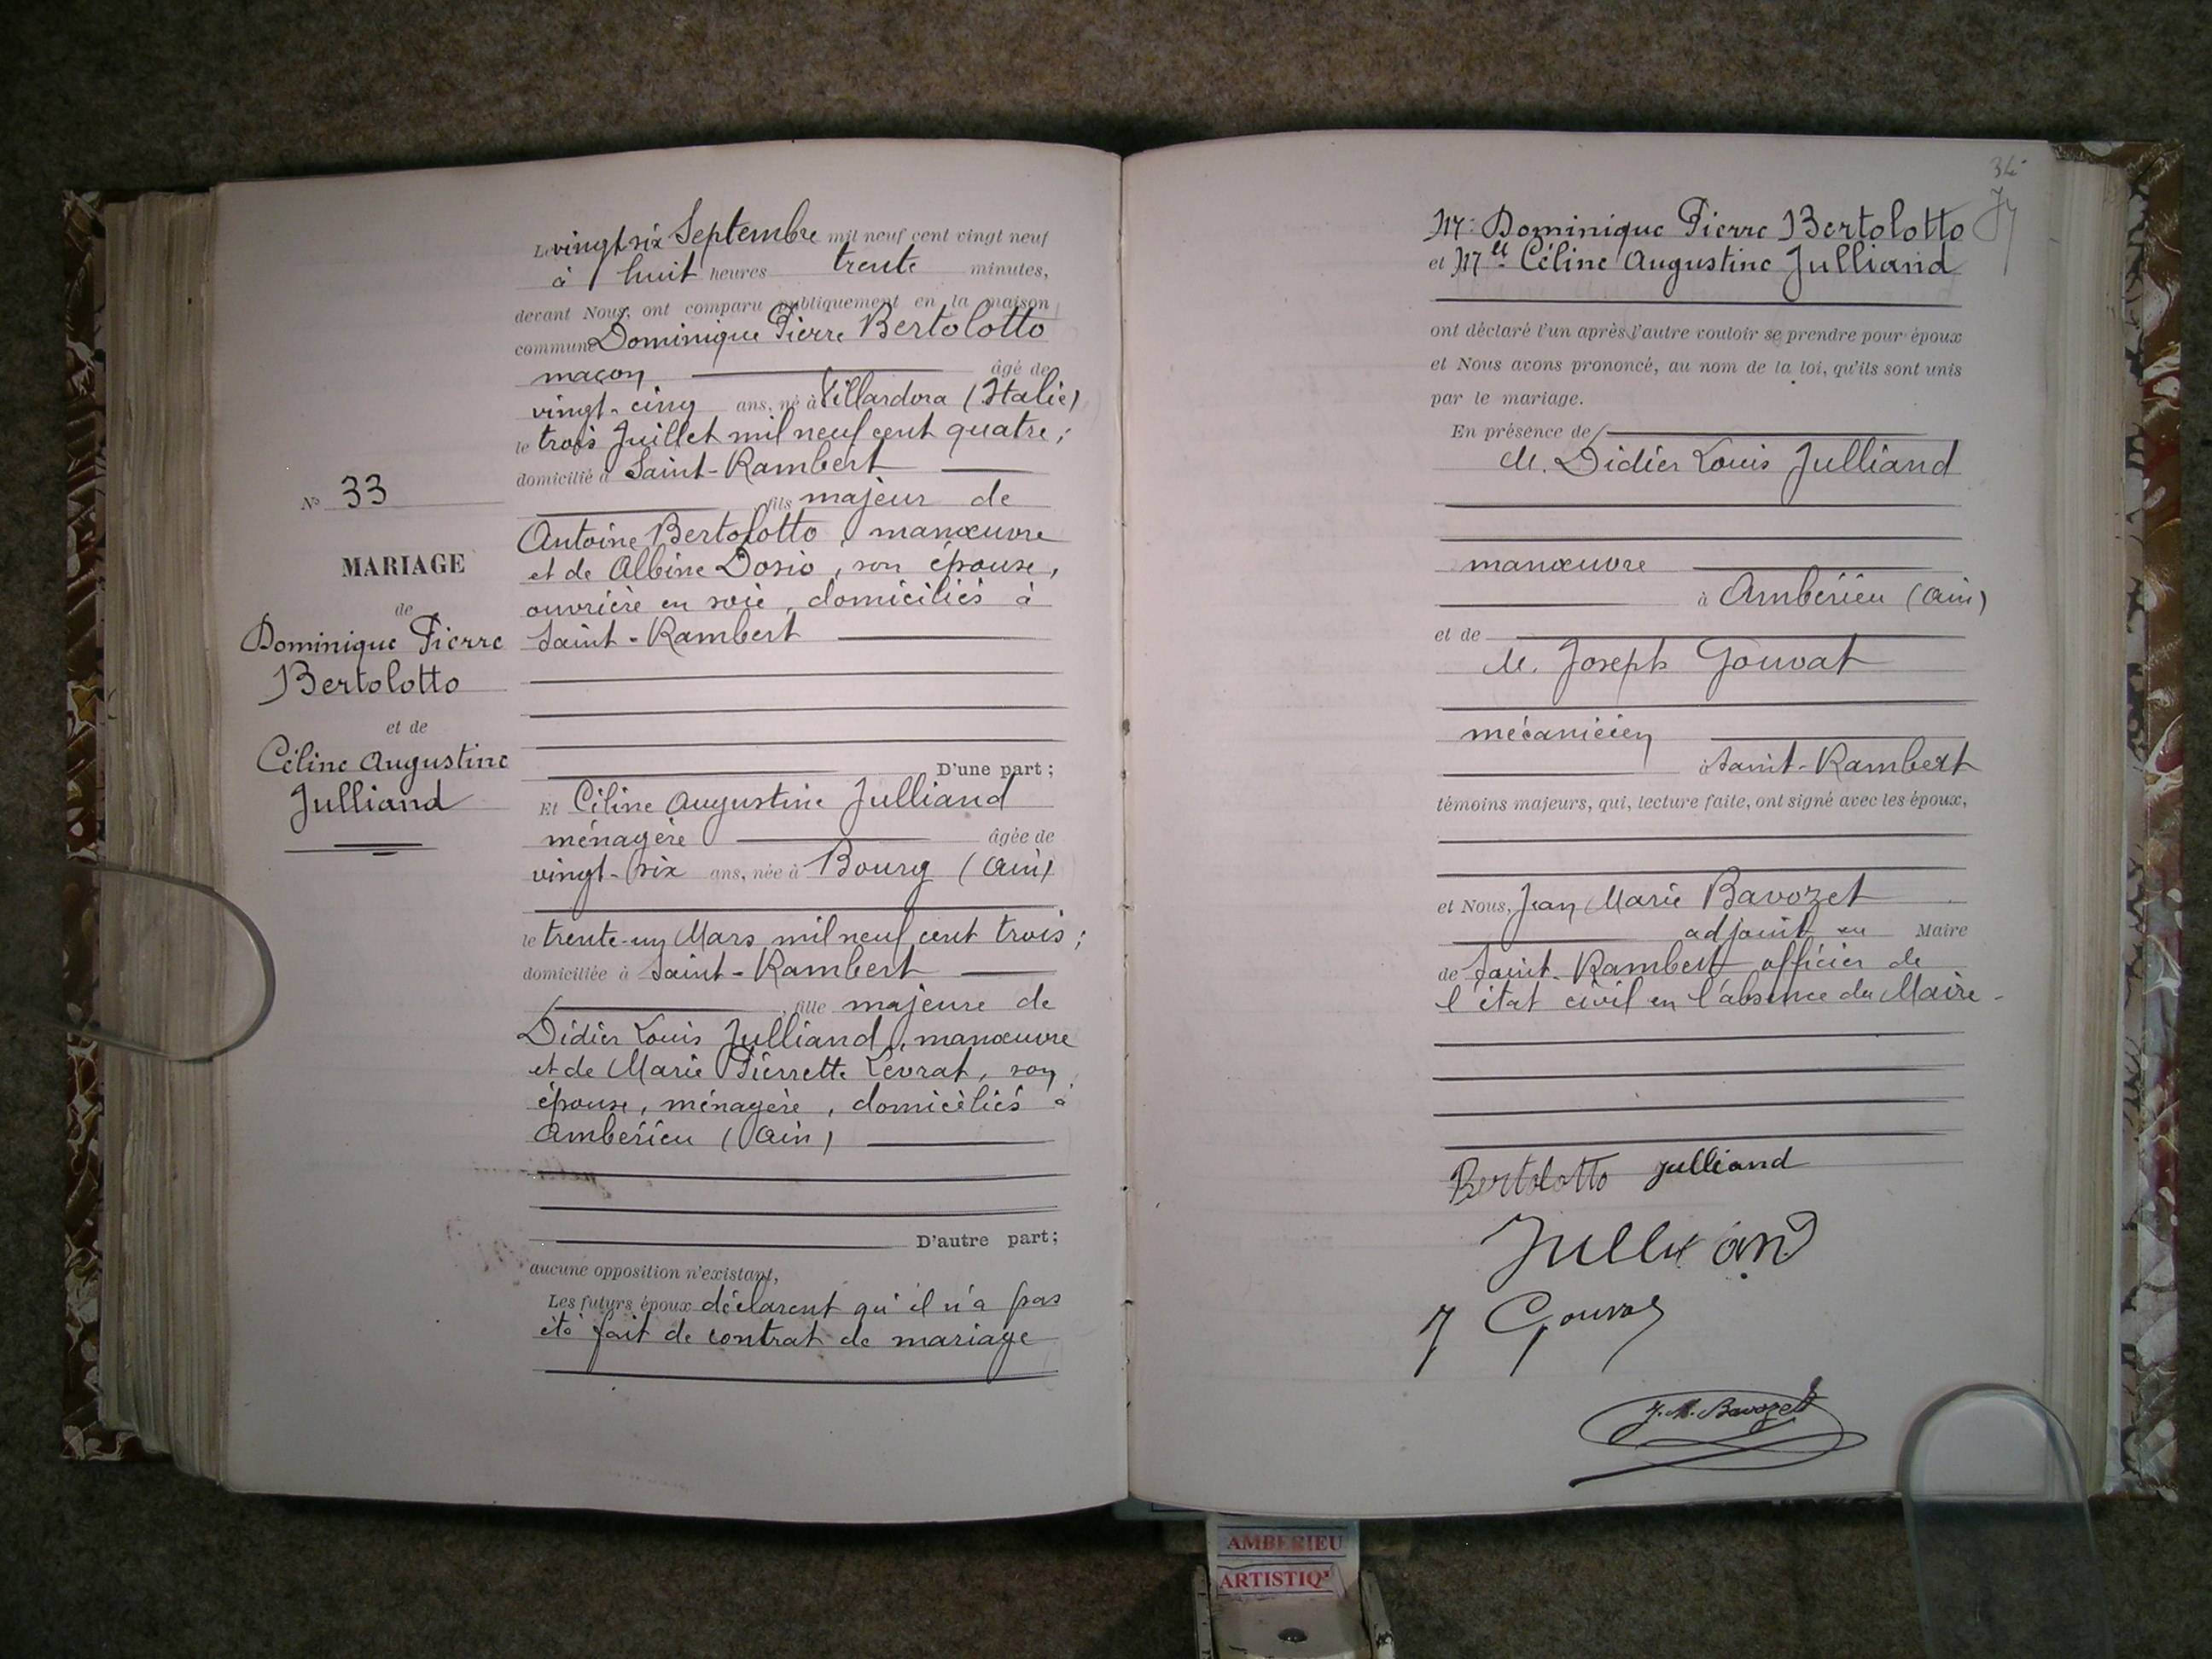 N° 33
MARIAGE
de
Dominique Pierre
Bertolotto
et de
Céline Augustine
Julliand
Le vingt six Septembre mil neuf cent vingt neuf
à huit heures trente minutes,
devant Nous, ont comparu publiquement en la maison
commune Dominique Pierre Bertolotto
maçon âgé de
vingt-cinq ans, né à Villardora (Italie)
le trois Juillet mil neuf cent quatre ;
domicilié à Saint-Rambert
fils majeur de
Antoine Bertolotto, manœuvre
et de Albine Dosio, son épouse,
ouvrière en soie, domiciliés à
Saint-Rambert
D'une part ;
Et Céline Augustine Julliand
ménagère âgée de
vingt-six ans, née à Bourg (Ain)
le trente-un Mars mil neuf cent trois ;
domiciliée à Saint-Rambert
fille majeure de
Didier Louis Julliand, manœuvre
et de Marie Pierrette Levrat, son
épouse, ménagère, domiciliés à
Ambérieu (Ain)
D'autre part ;
aucune opposition n'existant,
Les futurs époux déclarent qu'il n'a pas
été fait de contrat de mariage
34
M. Dominique Pierre Bertolotto
et Mlle Céline Augustine Julliand
ont déclaré l'un après l'autre vouloir se prendre pour époux
et Nous avons prononcé, au nom de la loi, qu'ils sont unis
par le mariage.
En présence de
M. Didier Louis Julliand
manœuvre
à Ambérieu (Ain)
et de
M. Joseph Gouvat
mécanicien
à Saint-Rambert
témoins majeurs, qui, lecture faite, ont signé avec les époux,
et Nous, Jean Marie Bavozet
adjoint au Maire
de Saint-Rambert officier de
l'état civil en l'absence du Maire -
Bertolotto Julliand
Julliand
J Gouvat
J. M. Bavozet
AMBERIEU
ARTISTIQ